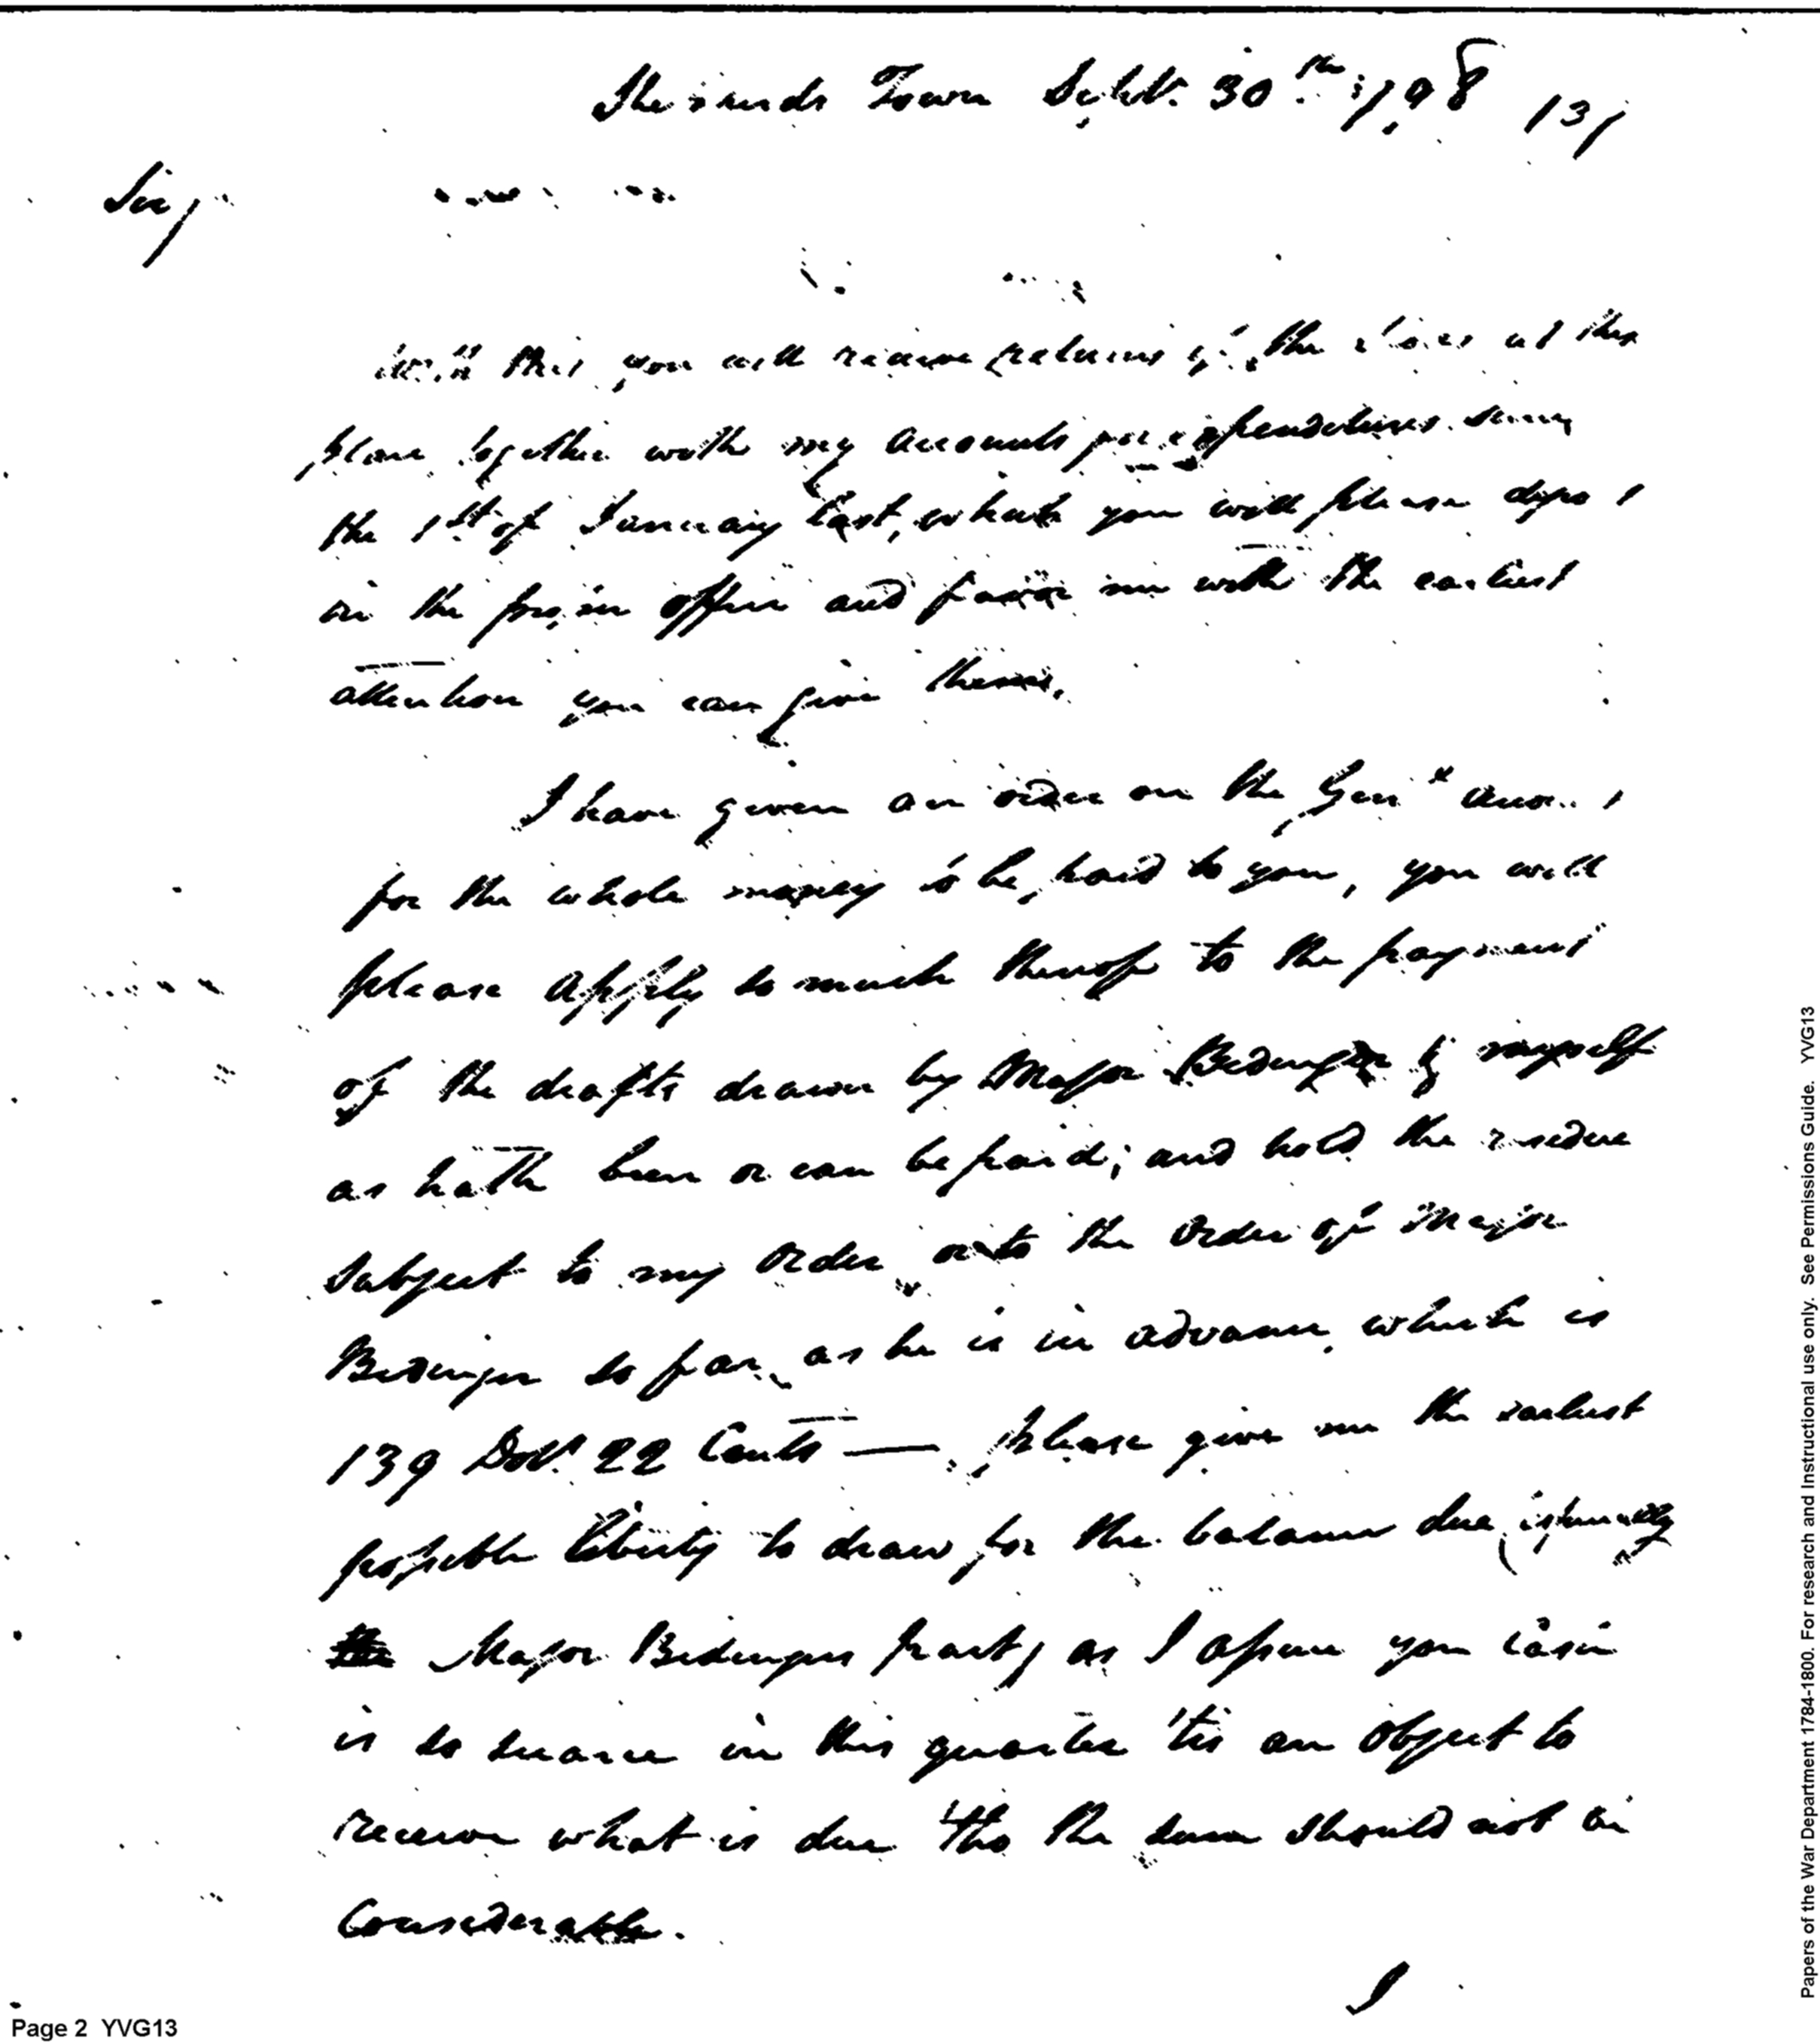 Town Sept. 30th 1798 131
Sir/
With this you will receive returns of the at this
place together with my accounts for expenditures since
the 1st of January last, which you will please
in the proper office and favor me with the earliest
attention you can give them.
I have given an order on the
for the whole money to be paid to you, you will
please apply so much thereof to the payment
of the drafts drawn by Major Bedinger & myself
as hath been or can be paid; and hold the residue
subject to my order, or to the order of Major
Bedinger so far, as he is in advance, which is
139 Doll. 22 Cents — please give me the earliest
possible liberty to draw for the balance due,
Major Bedingers part) as I assure you Cash
is so scarce in this quarter 'tis an object to
receive what is due 'tho the sum should not be
Considerable.
I
Page 2 YVG13
Papers of the War Department 1784-1800. For research and Instructional use only. See Permissions Guide. YVG13